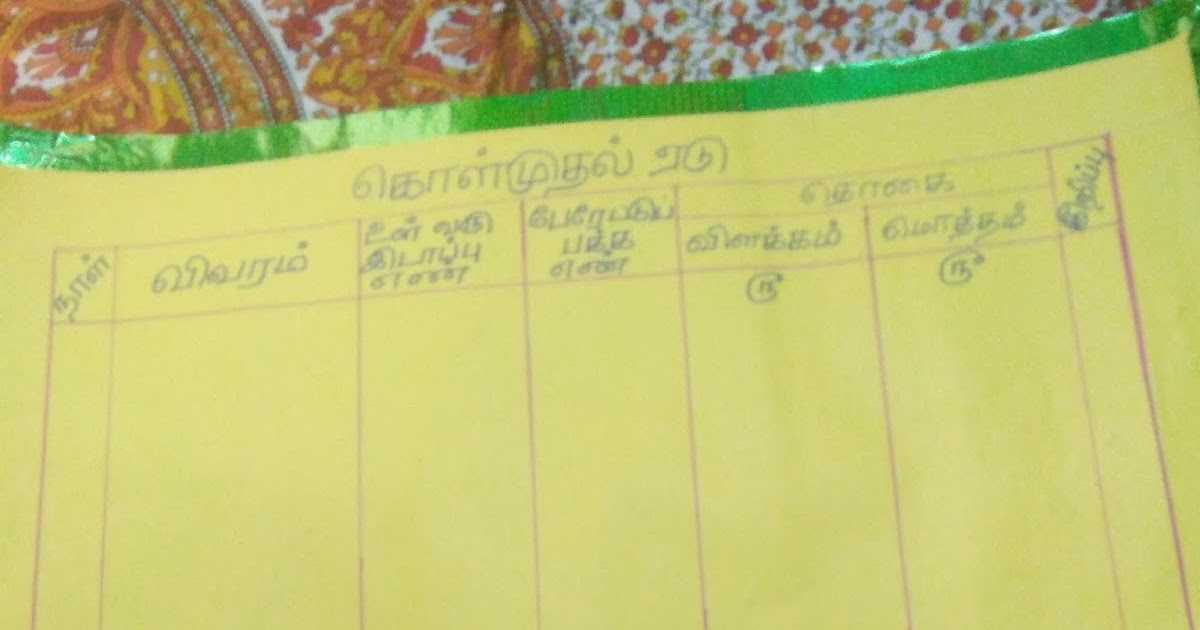 கொள்முதல் ஏடு
நாள்
விவரம்
உள் வரு
இடாப்பு
எண்
பேரேட்டுப்
பக்க
எண்
தொகை
விளக்கம்
ரூ
மொத்தம்
ரூ
குறிப்பு